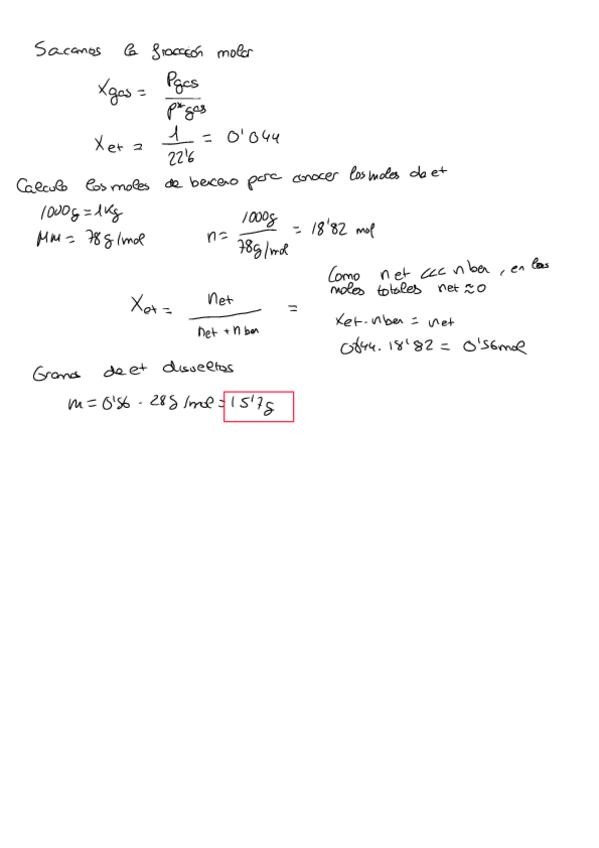 Sacamos la fracción molar
Xgas = Pgas / P*gas
Xet = 1 / 22'6 = 0'044
Calculo los moles de benceno para conocer los moles de et
1000g = 1Kg
MM = 78 g/mol
n = 1000g / 78g/mol = 18'82 mol
Xet = net / net + nben =
Como net <<< nben, en los
moles totales net ≈ 0
Xet · nben = net
0'044 · 18'82 = 0'56mol
Gramos de et disueltos
m = 0'56 · 28 g/mol = 15'7g